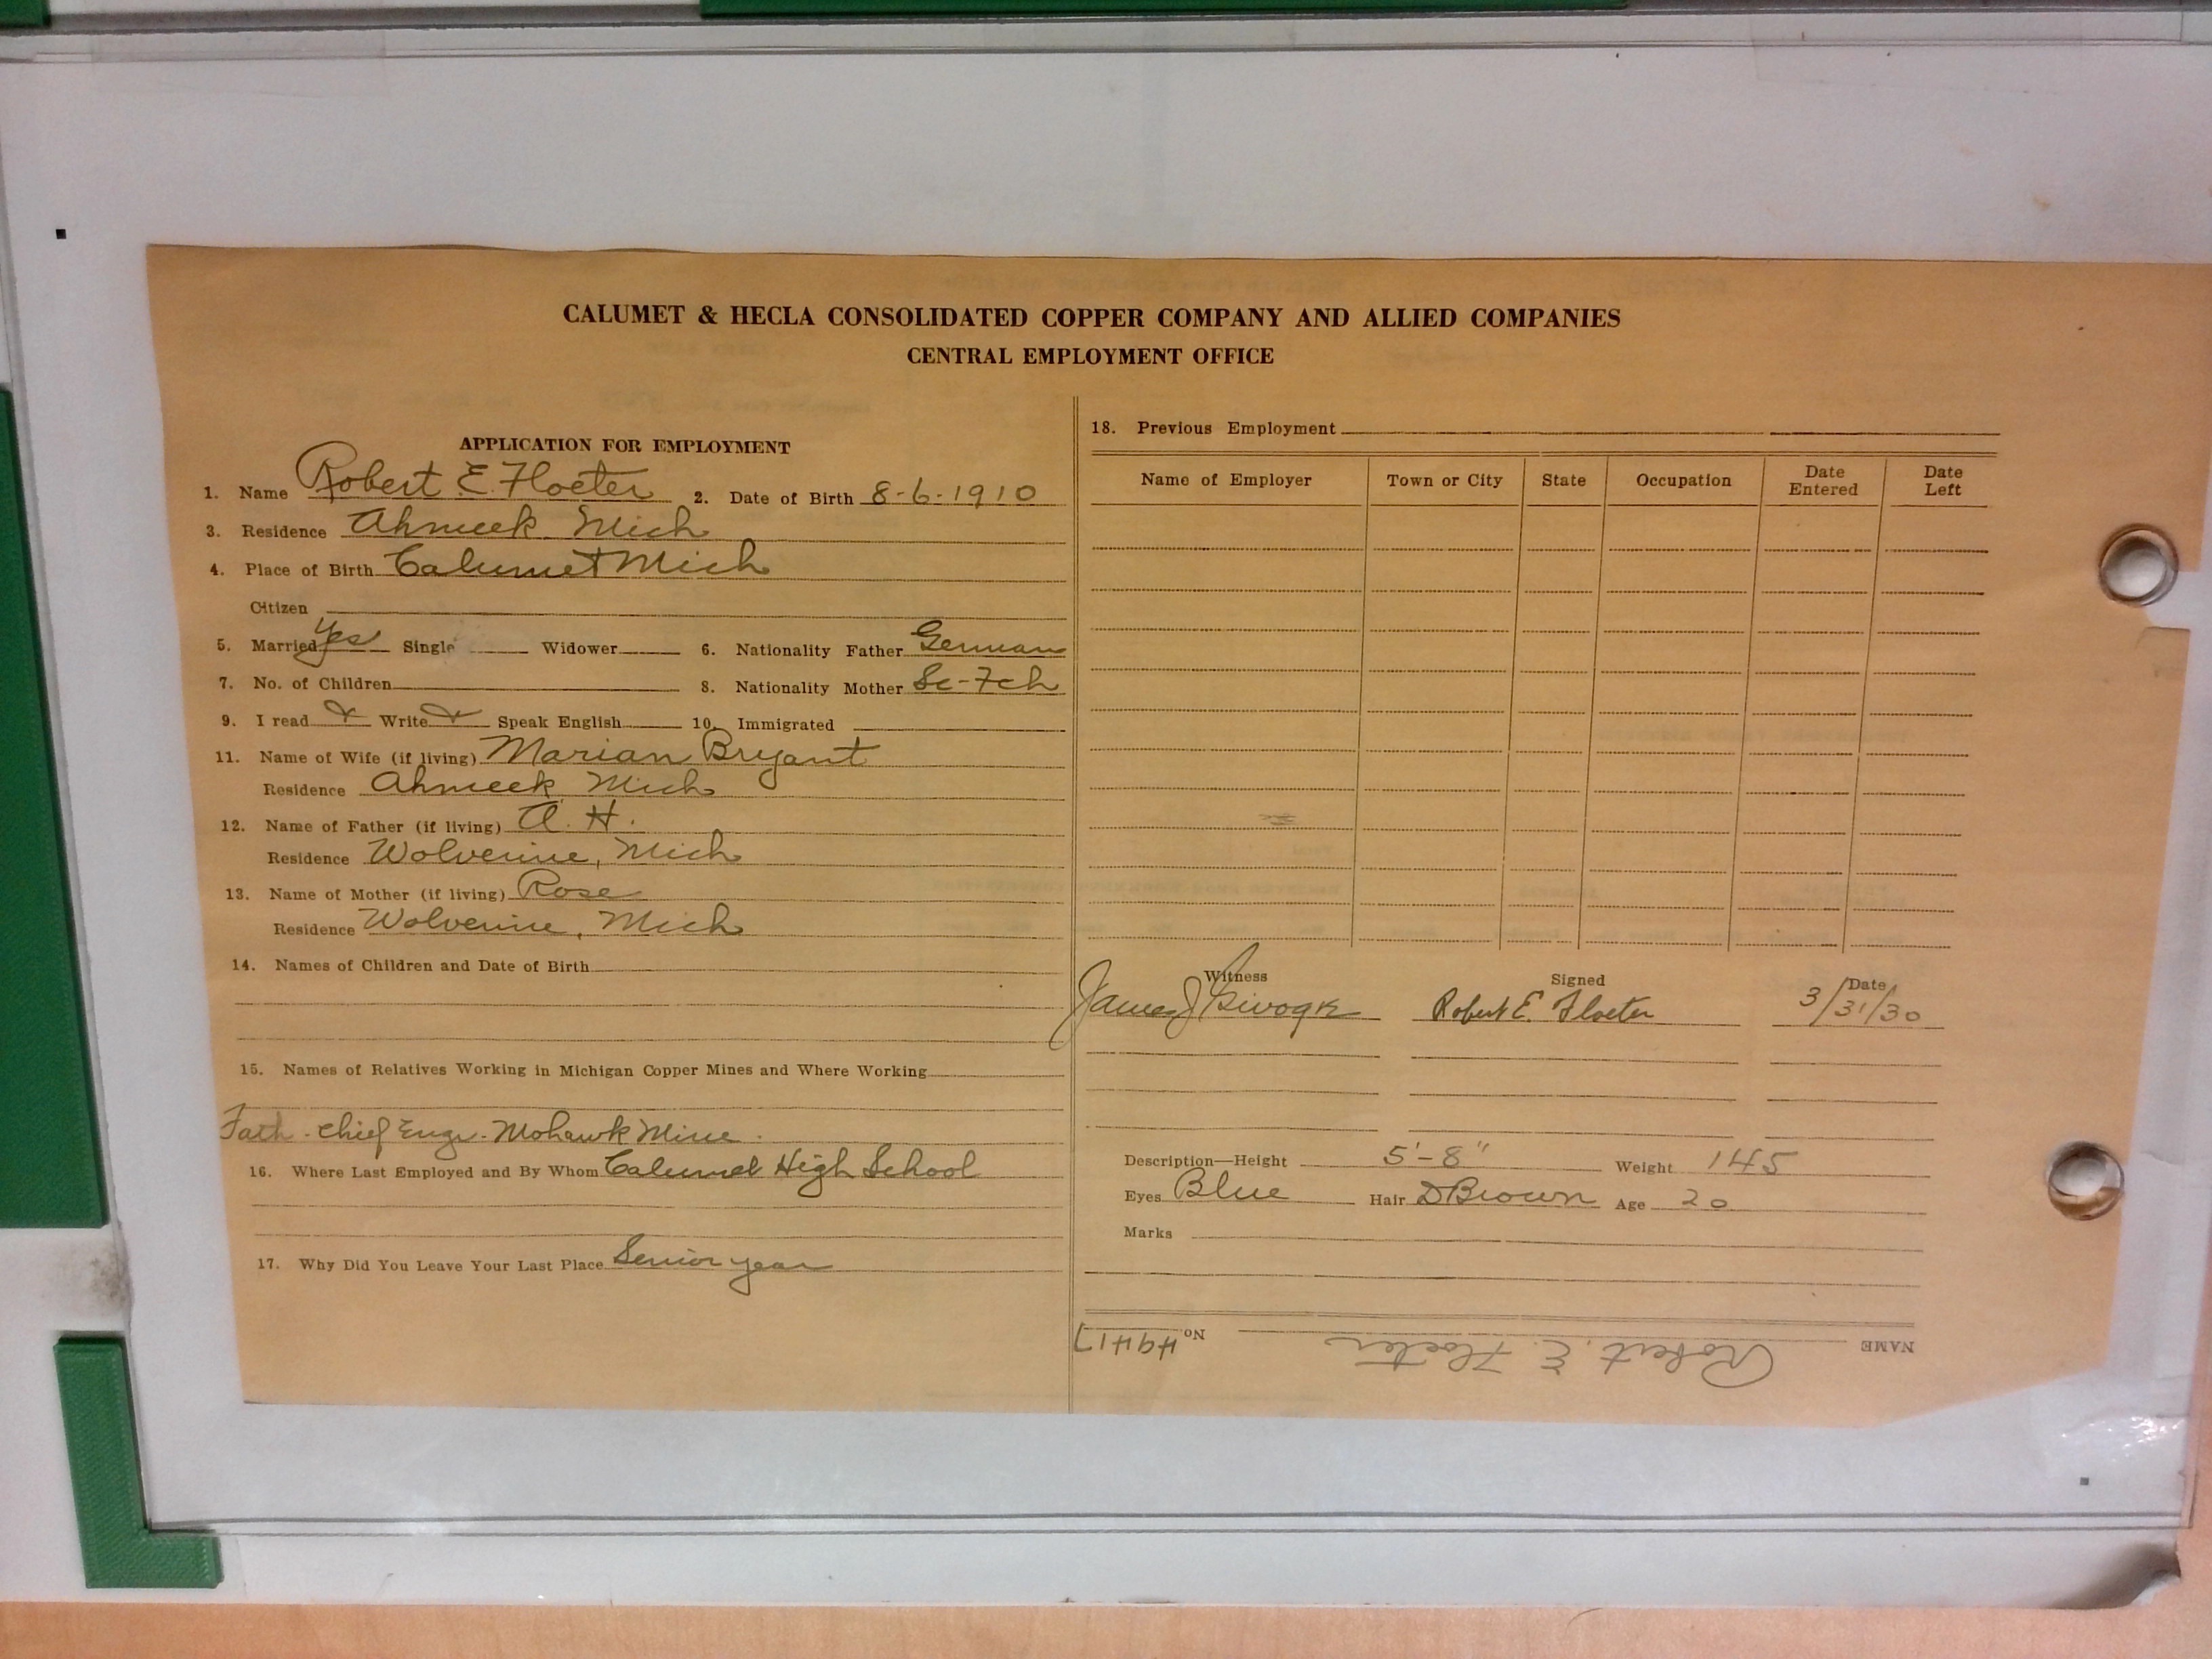 CALUMET & HECLA CONSOLIDATED COPPER COMPANY AND ALLIED COMPANIES
CENTRAL EMPLOYMENT OFFICE
APPLICATION FOR EMPLOYMENT
1. Name Robert E. Floeter 2. Date of Birth 8-6-1910
3. Residence Ahmeek Mich
4. Place of Birth Calumet Mich
Citizen
5. Married yes Single Widower 6. Nationality Father German
7. No. of Children 8. Nationality Mother Sc-Fch
9. I read Write Speak English 10. Immigrated
11. Name of Wife (if living) Marian Bryant
Residence Ahmeek Mich
12. Name of Father (if living) A. H.
Residence Wolverine, Mich
13. Name of Mother (if living) Rose
Residence Wolverine, Mich
14. Names of Children and Date of Birth
15. Names of Relatives Working in Michigan Copper Mines and Where Working
Fath. Chief Engr. Mohawk Mine.
16. Where Last Employed and By Whom Calumet High School
17. Why Did You Leave Your Last Place Senior year
18. Previous Employment
Name of Employer Town or City State Occupation Date Entered Date Left
Witness Signed Date
James J Robert E. Floeter 3/31/30
Description—Height 5'-8" Weight 145
Eyes Blue Hair DBrown Age 20
Marks
NAME Robert. E. Floeter No. 49417